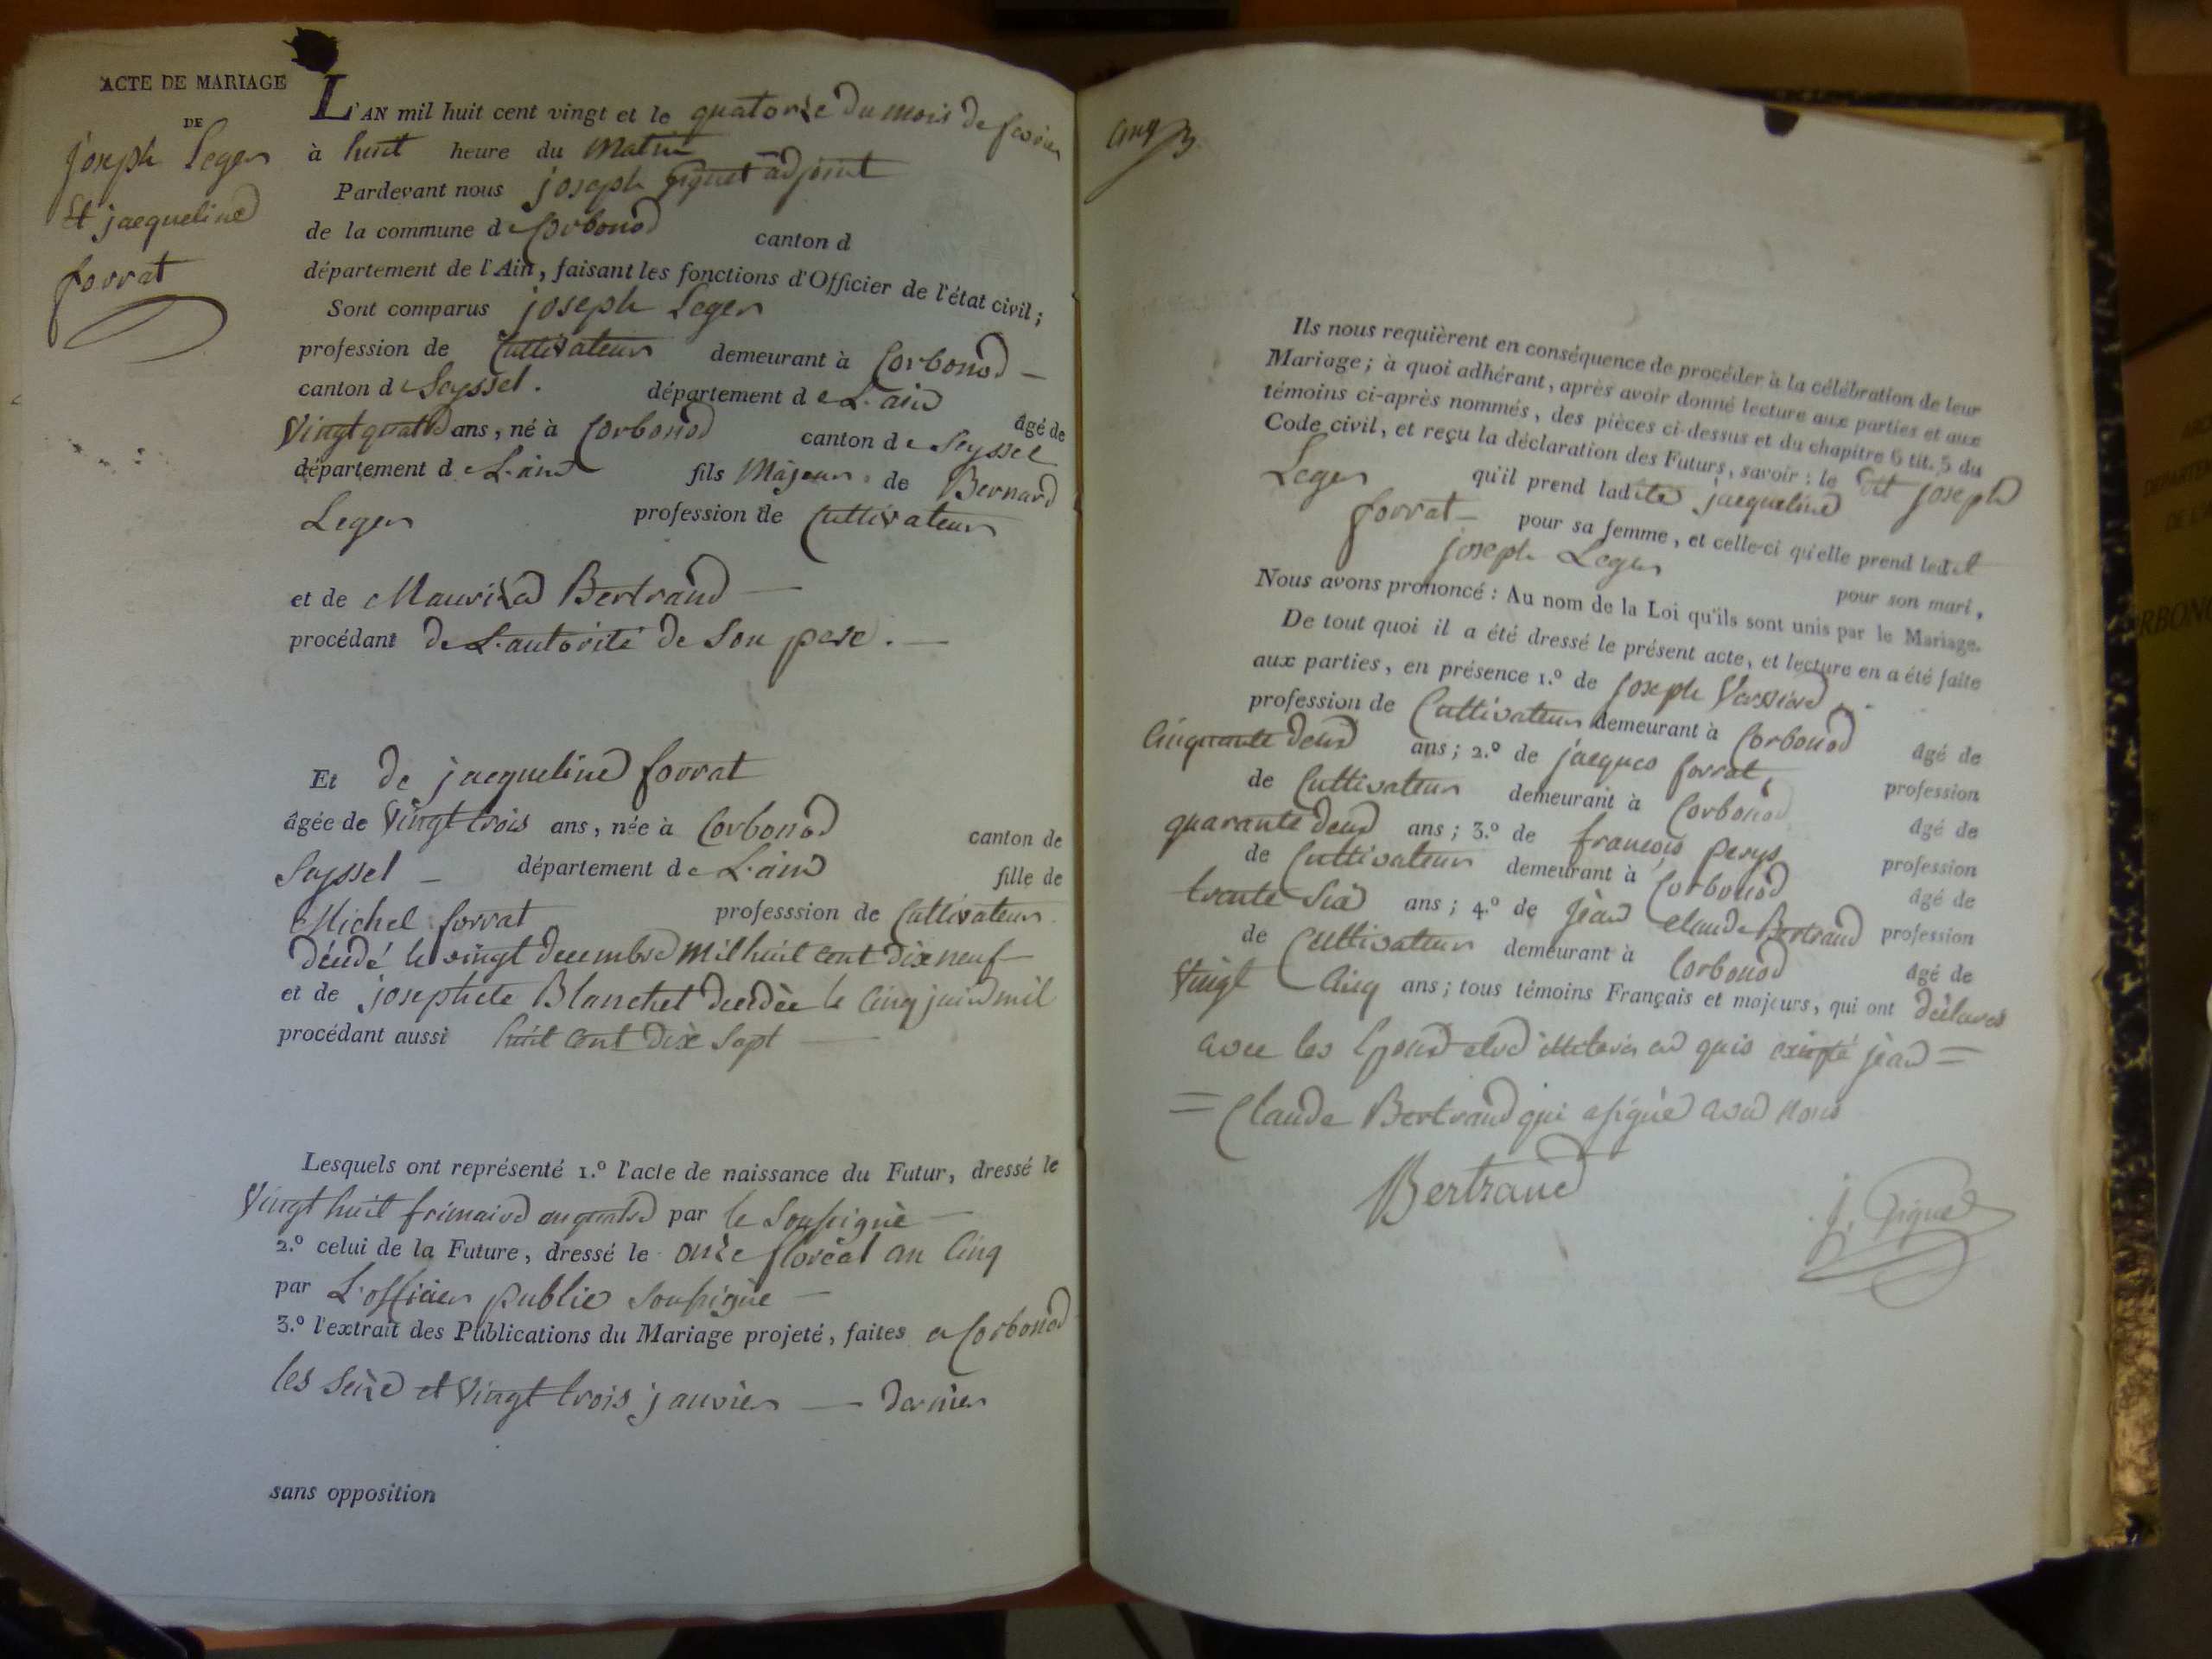 ACTE DE MARIAGE
DE
joseph Leger
Et jacqueline
forrat
L'AN mil huit cent vingt et le quatorze du mois de fevrier
à huit heure du Matin
Pardevant nous joseph Giguet adjoint
de la commune de Corbonod canton d
département de l'Ain, faisant les fonctions d'Officier de l'état civil;
Sont comparus joseph Leger
profession de Cultivateur demeurant à Corbonod
canton de Seyssel. département de L'ain âgé de
Vingt quatre ans, né à Corbonod canton de Seyssel
département de L'ain fils Majeur de Bernard
Leger profession de Cultivateur
et de Maurisa Bertrand
procédant de L'autorité de Son pere.
Et de jacqueline forrat
âgée de Vingt trois ans, née à Corbonod canton de
Seyssel département de L'ain fille de
Michel forrat professsion de Cultivateur
décédé le vingt decembre mil huit cent dix neuf
et de josephete Blanchet decédée le cinq juin mil
procédant aussi huit cent dix sept
Lesquels ont représenté 1.º l'acte de naissance du Futur, dressé le
Vingt huit frimaire an quatre par le Soussigné
2.º celui de la Future, dressé le onze floréal an Cinq
par L'officier public Soussigné
3.º l'extrait des Publications du Mariage projeté, faites a Corbonod
les Seize et Vingt trois janvier dernier
sans opposition
Cinq
Ils nous requièrent en conséquence de procéder à la célébration de leur
Mariage; à quoi adhérant, après avoir donné lecture aux parties et aux
témoins ci-après nommés, des pièces ci-dessus et du chapitre 6 tit. 5 du
Code civil, et reçu la déclaration des Futurs, savoir: le dit joseph
Leger qu'il prend ladite jacqueline
forrat pour sa femme, et celle-ci qu'elle prend ledit
joseph Leger pour son mari,
Nous avons prononcé: Au nom de la Loi qu'ils sont unis par le Mariage.
De tout quoi il a été dressé le présent acte, et lecture en a été faite
aux parties, en présence 1.º de joseph
profession de Cultivateur demeurant à Corbonod âgé de
Cinquante deux ans; 2.º de jacques forrat, profession
de Cultivateur demeurant à Corbonod âgé de
quarante deux ans; 3.º de françois perys profession
de Cultivateur demeurant à Corbonod âgé de
trente Six ans; 4.º de jean claude Bertrand profession
de Cultivateur demeurant à Corbonod âgé de
Vingt Cinq ans; tous témoins Français et majeurs, qui ont déclarés
avec les Epoux jean =
= Claude Bertrand qui a signé avec nous
Bertrand
j. Giguet